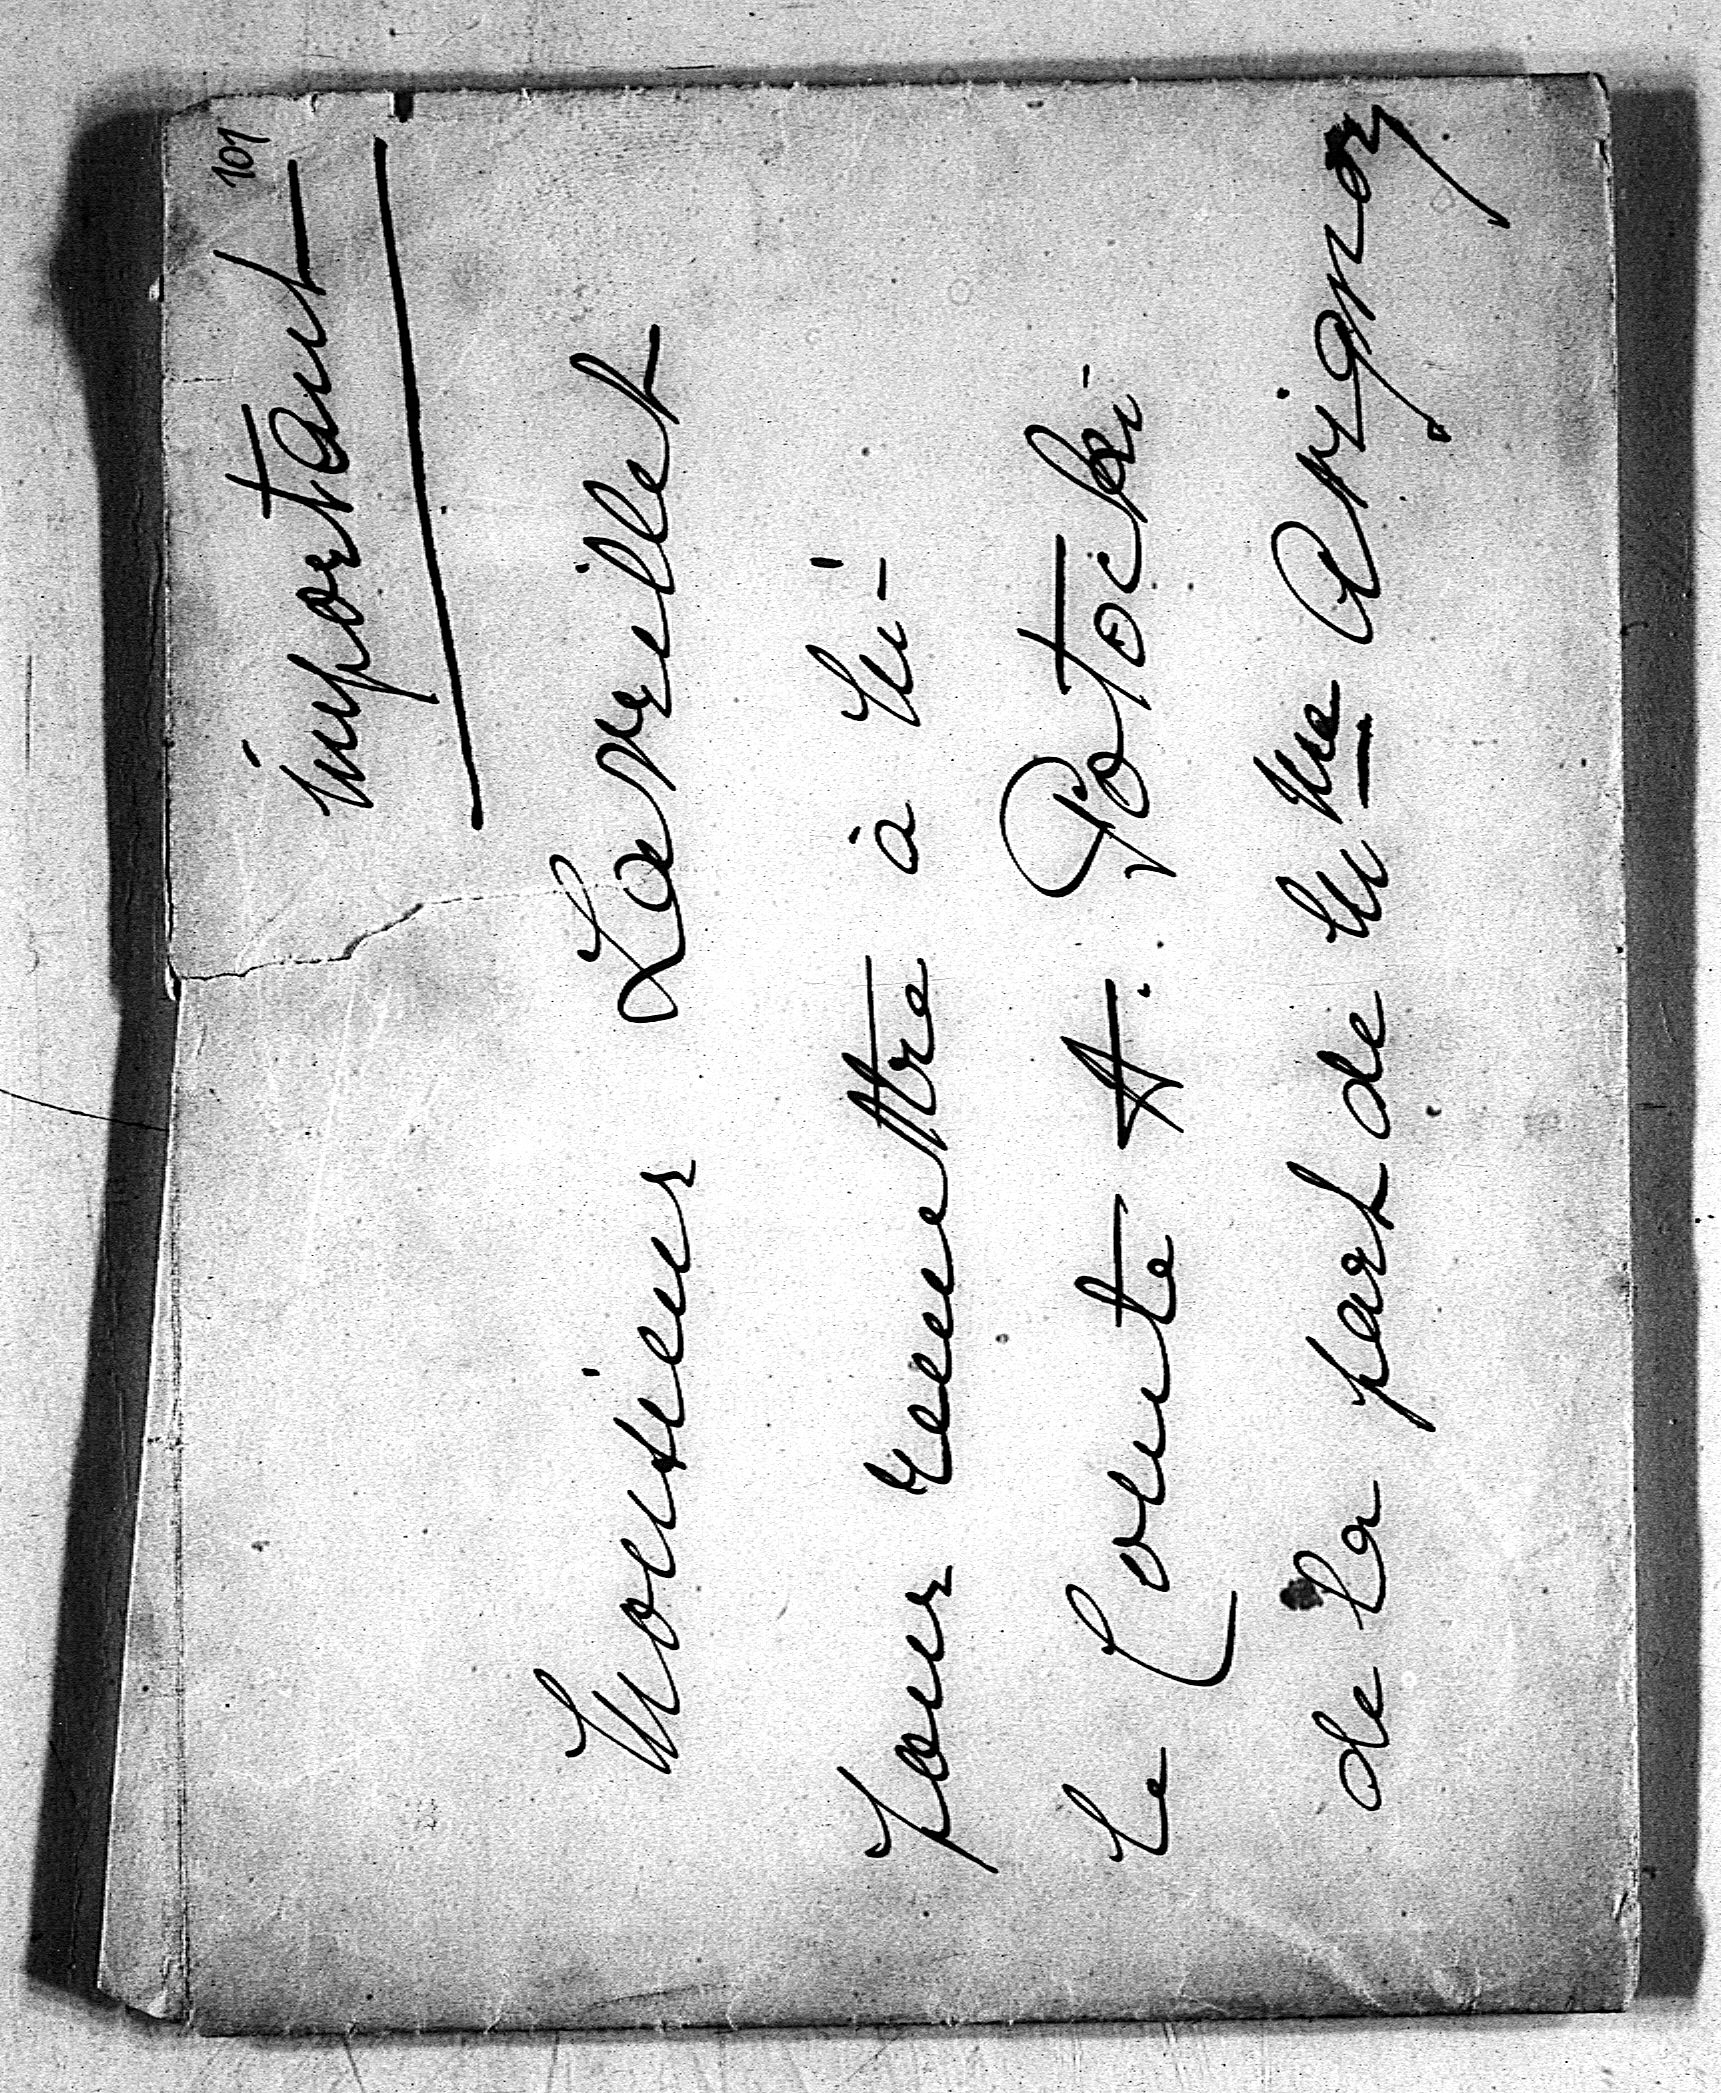 101
important
Monsieur Lavrillet
pour remettre à M.
le Comte A. Potocki
de la part de M Me Avignon